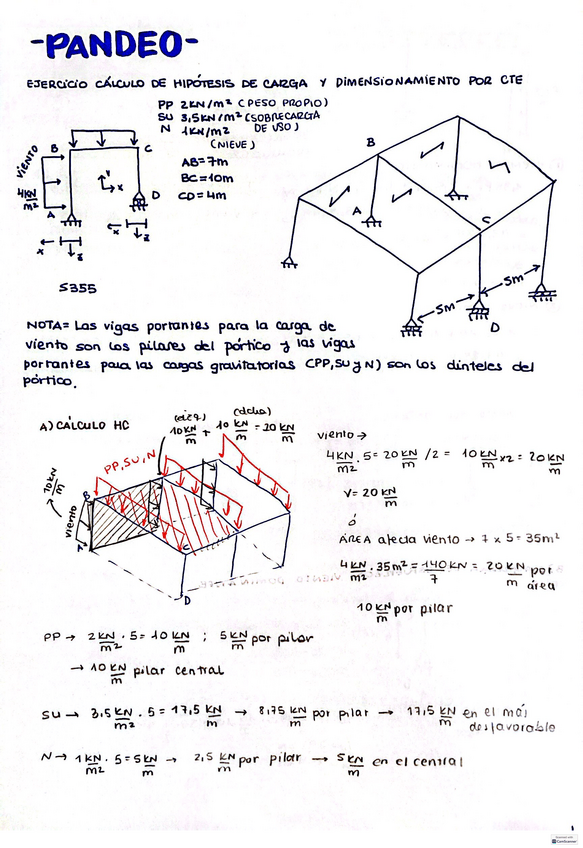 -PANDEO-
EJERCICIO CÁLCULO DE HIPÓTESIS DE CARGA Y DIMENSIONAMIENTO POR CTE
PP 2KN/m² (PESO PROPIO)
SU 3,5KN/m² (SOBRECARGA DE USO)
N 1KN/m² (NIEVE)
AB=7m
BC=10m
CD=4m
VIENTO
4KN/m²
B
C
A
D
Y
X
X
Z
X
Z
S355
B
A
C
D
5m
5m
NOTA= Las vigas portantes para la carga de
viento son los pilares del pórtico y las vigas
portantes para las cargas gravitatorias (PP, SU y N) son los dinteles del
pórtico.
A) CÁLCULO HC
(izq) (dcha)
10 KN/m + 10 KN/m = 20 KN/m
PP, SU, N
viento
B
C
D
viento →
4KN/m² . 5 = 20 KN/m /2 = 10 KN/m x2 = 20 KN/m
V= 20 KN/m
ó
ÁREA afecta viento → 7 x 5 = 35m²
4 KN/m² . 35m² = 140KN/7 = 20 KN/m por área
10 KN/m por pilar
PP → 2KN/m² . 5 = 10 KN/m ; 5 KN/m por pilar
→ 10 KN/m pilar central
SU → 3,5 KN/m² . 5 = 17,5 KN/m → 8,75 KN/m por pilar → 17,5 KN/m en el más desfavorable
N → 1 KN/m² . 5 = 5 KN/m → 2,5 KN/m por pilar → 5 KN/m en el central
1
CamScanner